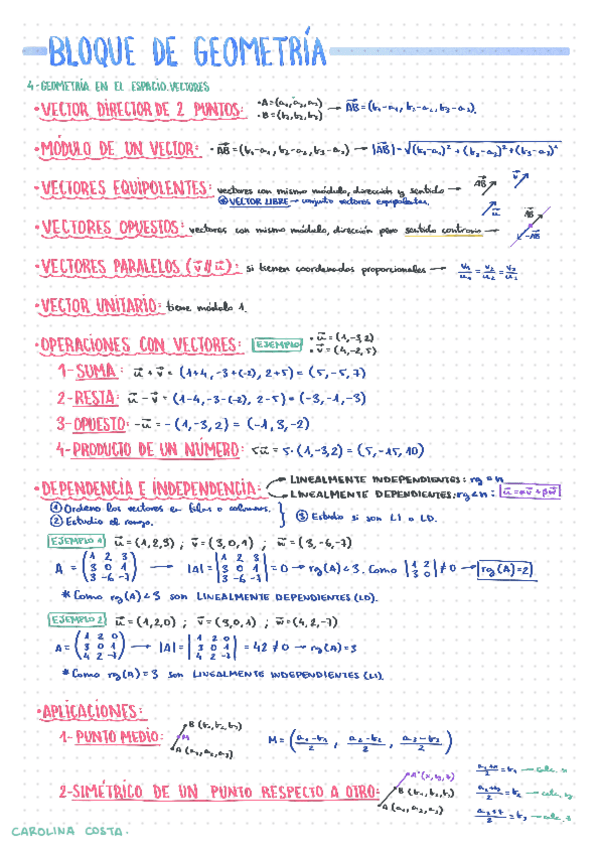 BLOQUE DE GEOMETRÍA
4-GEOMETRÍA EN EL ESPACIO.VECTORES
•VECTOR DIRECTOR DE 2 PUNTOS: •A=(a₁,a₂,a₃) •B=(b₁,b₂,b₃) → AB=(b₁-a₁, b₂-a₂, b₃-a₃).
•MÓDULO DE UN VECTOR: •AB=(b₁-a₁, b₂-a₂, b₃-a₃) → |AB|=√(b₁-a₁)² + (b₂-a₂)² + (b₃-a₃)²
•VECTORES EQUIPOLENTES: vectores con mismo módulo, dirección y sentido → AB v u
VECTOR LIBRE → conjunto vectores equipolentes.
•VECTORES OPUESTOS: vectores con mismo módulo, dirección pero sentido contrario → AB -AB
•VECTORES PARALELOS (v//u): si tienen coordenadas proporcionales → v₁/u₁ = v₂/u₂ = v₃/u₃
•VECTOR UNITARIO: tiene módulo 1.
•OPERACIONES CON VECTORES: EJEMPLO •u=(1,-3,2) •v=(4,-2,5)
1-SUMA: u+v= (1+4, -3+(-2), 2+5) = (5,-5,7)
2-RESTA: u-v= (1-4,-3-(-2), 2-5) = (-3,-1,-3)
3-OPUESTO: -u=-(1,-3,2) = (-1,3,-2)
4-PRODUCTO DE UN NÚMERO: 5u= 5·(1,-3,2) = (5,-15,10)
•DEPENDENCIA E INDEPENDENCIA: LINEALMENTE INDEPENDIENTES: rg=n
LINEALMENTE DEPENDIENTES: rg<n: u=αv+βw
① Ordeno los vectores en filas o columnas.
② Estudio el rango.
③ Estudio si son LI o LD.
EJEMPLO 1 u=(1,2,3) ; v=(3,0,1) ; w=(3,-6,-7)
A = (1 2 3 / 3 0 1 / 3 -6 -7) → |A|= |1 2 3 / 3 0 1 / 3 -6 -7| = 0 → rg(A)<3. Como |1 2 / 3 0| ≠ 0 → rg(A)=2
* Como rg(A)<3 son LINEALMENTE DEPENDIENTES (LD).
EJEMPLO 2 u=(1,2,0) ; v=(3,0,1) ; w=(4,2,-7)
A= (1 2 0 / 3 0 1 / 4 2 -7) → |A|= |1 2 0 / 3 0 1 / 4 2 -7| = 42 ≠ 0 → rg(A)=3
* Como rg(A)=3 son LINEALMENTE INDEPENDIENTES (LI).
•APLICACIONES:
1-PUNTO MEDIO: B (b₁,b₂,b₃) M A (a₁,a₂,a₃) M = (a₁-b₁/2 , a₂-b₂/2 , a₃-b₃/2)
2-SIMÉTRICO DE UN PUNTO RESPECTO A OTRO: A'(x,y,z) B (b₁,b₂,b₃) A (a₁,a₂,a₃)
CAROLINA COSTA.